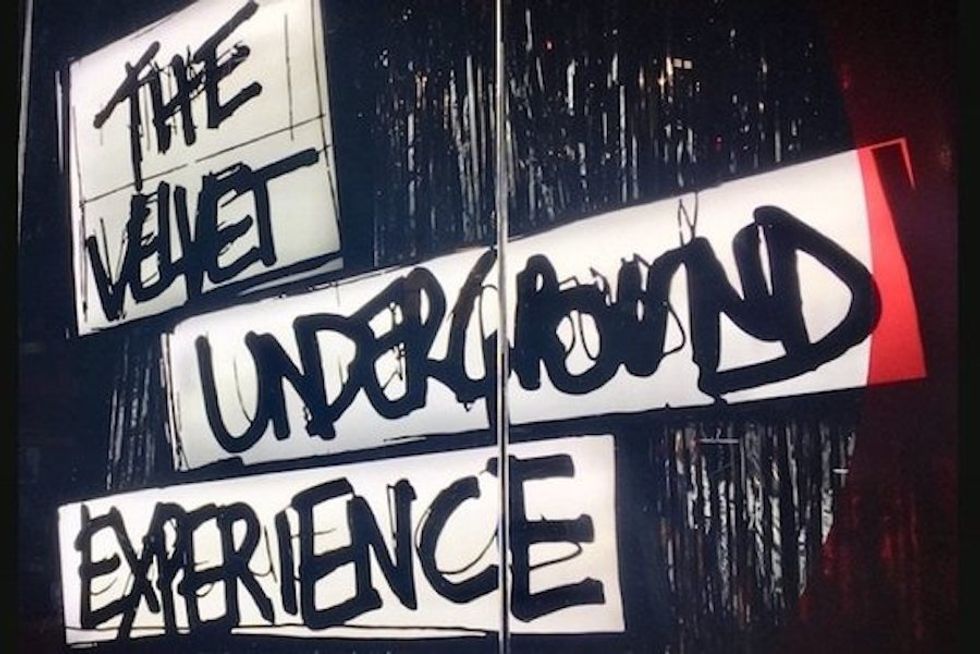 THE
VELVET
UNDERGROUND
EXPERIENCE